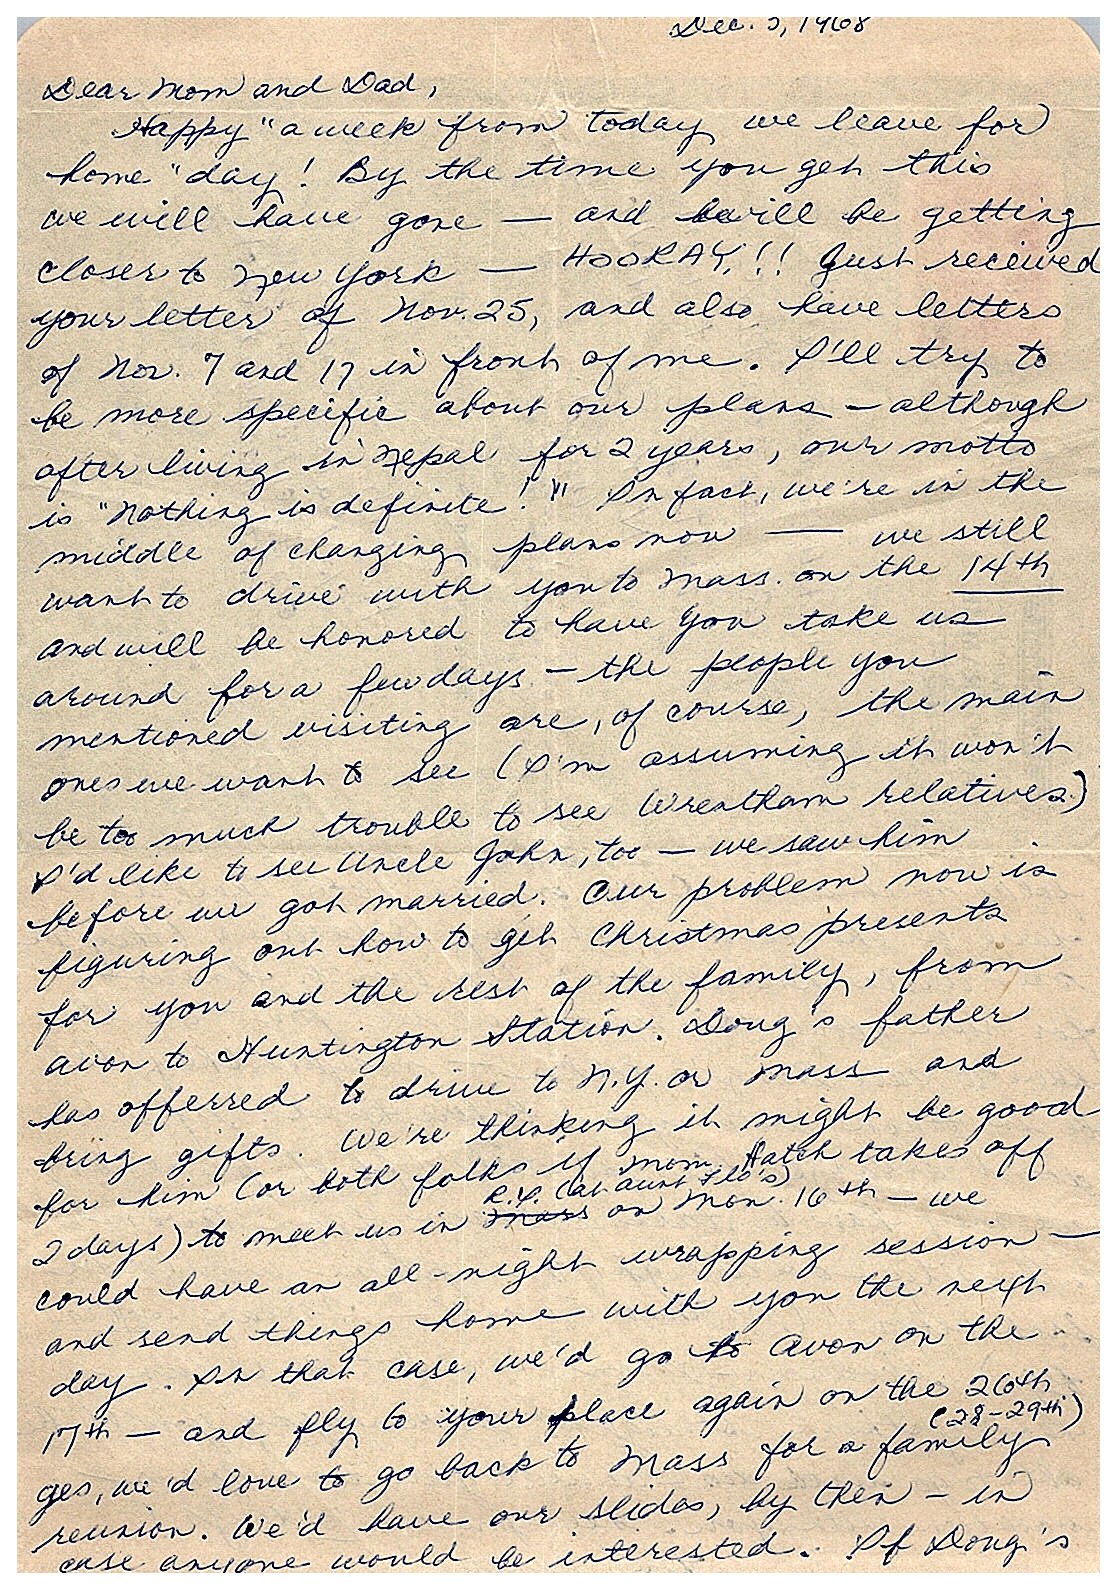 Dec. 5, 1968
Dear Mom and Dad,
Happy "a week from today we leave for
home" day! By the time you get this
we will have gone — and will be getting
closer to New York — HOORAY!!! Just received
your letter of Nov. 25, and also have letters
of Nov. 7 and 17 in front of me. I'll try to
be more specific about our plans — although
after living in Nepal for 2 years, our motto
is "Nothing is definite!" In fact, we're in the
middle of changing plans now — we still
want to drive with you to Mass. on the 14th
and will be honored to have you take us
around for a few days — the people you
mentioned visiting are, of course, the main
ones we want to see (I'm assuming it won't
be too much trouble to see Wrentham relatives.)
I'd like to see Uncle John, too — we saw him
before we got married. Our problem now is
figuring out how to get Christmas presents
for you and the rest of the family, from
Avon to Huntington Station. Doug's father
has offerred to drive to N.Y. or Mass and
bring gifts. We're thinking it might be good
for him (or both folks if Mom Hatch takes off
R.I. (at Aunt Flo's)
2 days) to meet us in Mass on Mon. 16th — we
could have an all-night wrapping session —
and send things home with you the next
day. In that case, we'd go to Avon on the
17th — and fly to your place again on the 26th
(28-29th)
yes, we'd love to go back to Mass for a family
reunion. We'd have our slides, by then — in
case anyone would be interested. If Doug's